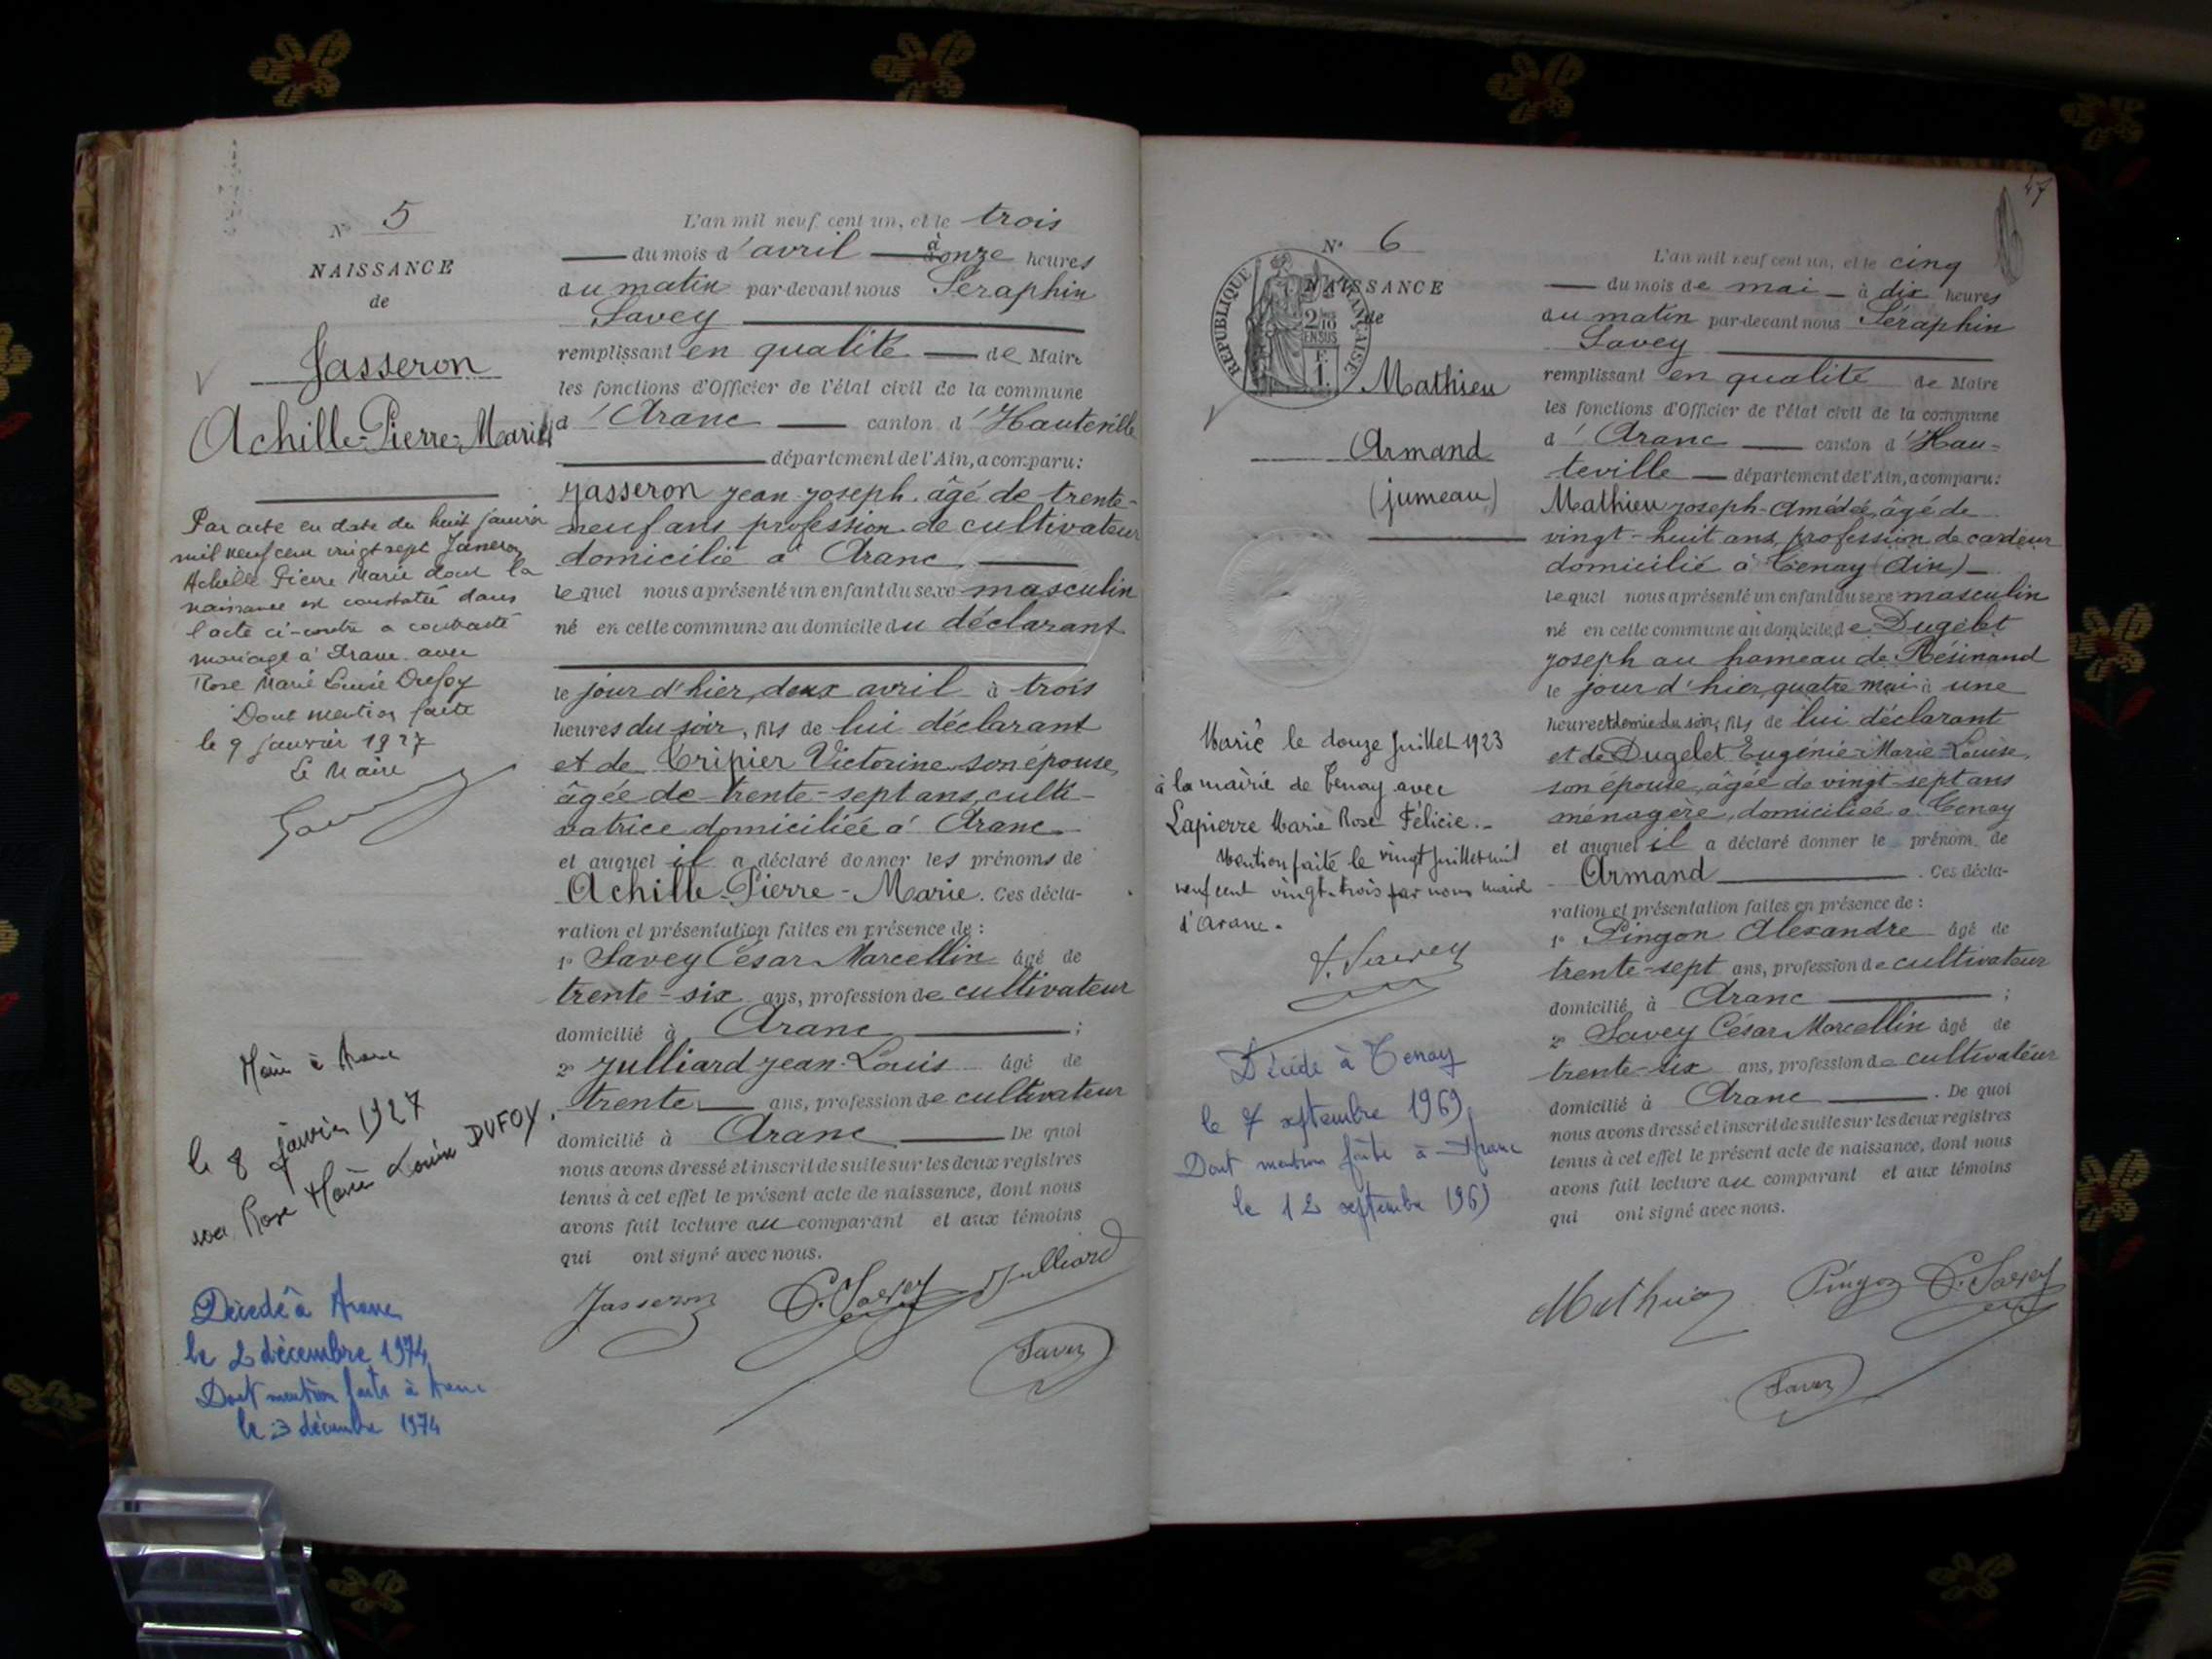 N° 5
NAISSANCE
de
Jasseron
Achille-Pierre-Marie
Par acte en date du huit janvier
mil neuf cent vingt sept Jasseron
Achille Pierre Marie dont la
naissance est constatée dans
l'acte ci-contre a contracté
mariage à Aranc avec
Rose Marie Louise Dufoy
Dont mention faite
le 9 janvier 1927
Le Maire
Marié à Aranc
le 8 janvier 1927
avec Rose Marie Louise DUFOY.
Décédé à Aranc
le 2 décembre 1974
Dont mention faite à Aranc
le 3 décembre 1974
L'an mil neuf cent un, et le trois
du mois d'avril à onze heures
du matin par-devant nous Séraphin
Savey
remplissant en qualité de Maire
les fonctions d'Officier de l'état civil de la commune
d'Aranc canton d'Hauteville
département de l'Ain, a comparu:
Jasseron Jean Joseph âgé de trente-
neuf ans profession de cultivateur
domicilié à Aranc
lequel nous a présenté un enfant du sexe masculin
né en cette commune au domicile du déclarant
le jour d'hier, deux avril à trois
heures du soir, fils de lui déclarant
et de Tripier Victorine son épouse,
âgée de trente-sept ans, culti-
vatrice domiciliée à Aranc
et auquel il a déclaré donner les prénoms de
Achille-Pierre-Marie. Ces décla-
ration et présentation faites en présence de :
1° Savey César Marcellin âgé de
trente-six ans, profession de cultivateur
domicilié à Aranc ;
2° Julliard Jean-Louis âgé de
trente ans, profession de cultivateur
domicilié à Aranc De quoi
nous avons dressé et inscrit de suite sur les deux registres
tenus à cet effet le présent acte de naissance, dont nous
avons fait lecture au comparant et aux témoins
qui ont signé avec nous.
Jasseron C. Savey Julliard
Savey
47
N° 6
NAISSANCE
de
REPUBLIQUE FRANÇAISE
2/10 EN SUS
Mathieu
Armand
(jumeau)
Marié le douze Juillet 1923
à la mairie de Tenay avec
Lapierre Marie Rose Félicie.-
Mention faite le vingt Juillet mil
neuf cent vingt-trois par nous maire
d'Aranc.
Décédé à Tenay
le 7 septembre 1969
Dont mention faite à Aranc
le 12 septembre 1969
L'an mil neuf cent un, et le cinq
du mois de mai à dix heures
du matin par-devant nous Séraphin
Savey
remplissant en qualité de Maire
les fonctions d'Officier de l'état civil de la commune
d'Aranc canton d'Hau-
teville département de l'Ain, a comparu:
Mathieu Joseph-Amédée, âgé de
vingt-huit ans, profession de cardeur
domicilié à Tenay (Ain)
lequel nous a présenté un enfant du sexe masculin
né en cette commune au domicile de Dugelet
Joseph au hameau de Résinand
le jour d'hier, quatre mai à une
heure et demie du soir, fils de lui déclarant
et de Dugelet Eugénie-Marie-Louise,
son épouse, âgée de vingt-sept ans
ménagère, domiciliée à Tenay
et auquel il a déclaré donner le prénom de
Armand . Ces décla-
ration et présentation faites en présence de :
1° Pingon Alexandre âgé de
trente-sept ans, profession de cultivateur
domicilié à Aranc ;
2° Savey César Marcellin âgé de
trente-six ans, profession de cultivateur
domicilié à Aranc . De quoi
nous avons dressé et inscrit de suite sur les deux registres
tenus à cet effet le présent acte de naissance, dont nous
avons fait lecture au comparant et aux témoins
qui ont signé avec nous.
Mathieu Pingon C. Savey
Savey